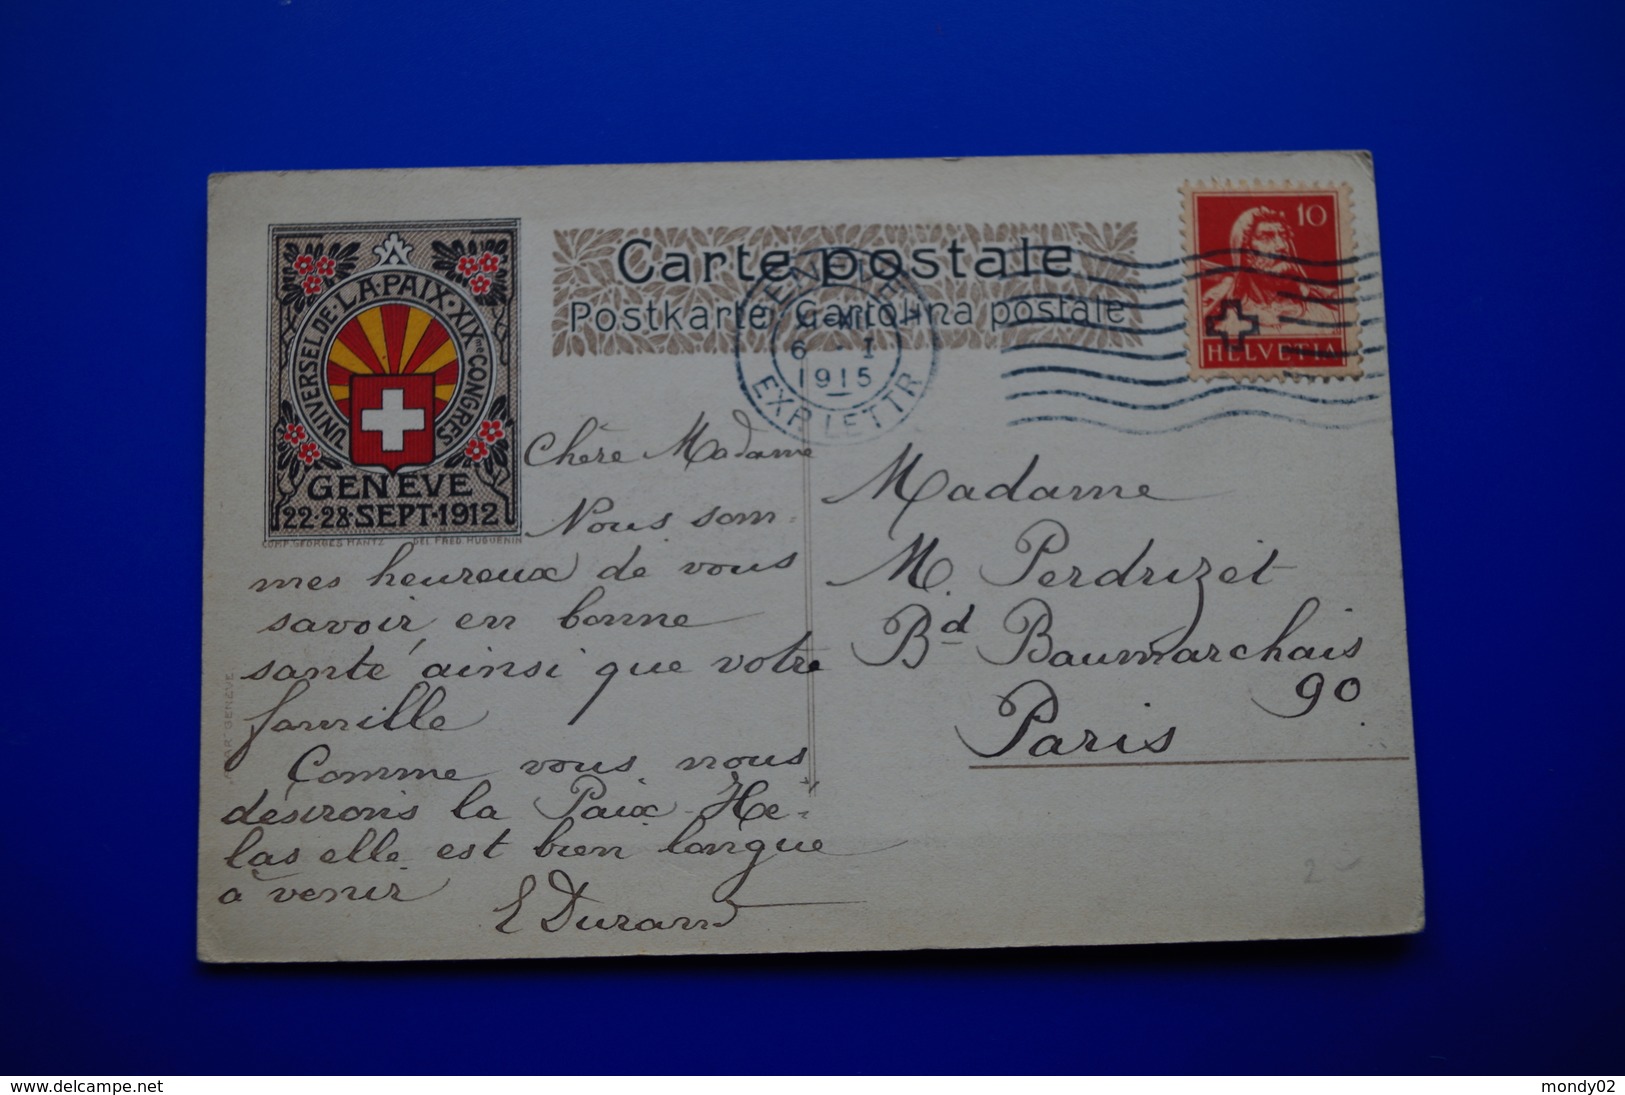 UNIVERSEL·DE·LA·PAIX·XIXme CONGRES
GENÈVE
22-28·SEPT·1912
COMP. GEORGES HANTZ DEL FRED HUGUENIN
Carte postale
Postkarte Cartolina postale
GENÈVE 1
XI-XII
6 - I
1915
EXP. LETTR
10
HELVETIA
Chère Madame
Nous som-
mes heureux de vous
savoir en bonne
santé ainsi que votre
famille
Comme vous nous
désirons la Paix. Hé-
las elle est bien longue
à venir
E Durand
Madame
M. Perdrizet
Bd Baumarchais
90
Paris
GENÈVE
2
www.delcampe.net
mondy02